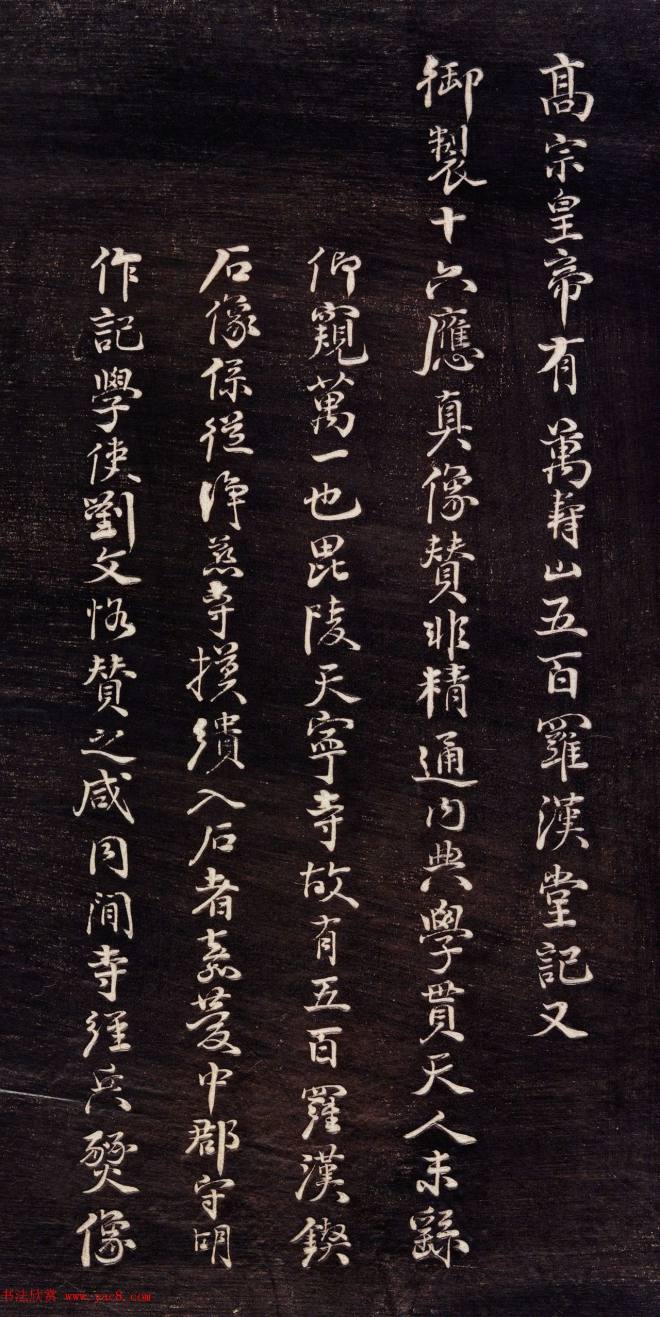 高宗皇帝有萬壽山五百羅漢堂記又
御製十六應真像贊非精通內典學貫天人未繇
仰窺萬一也毘陵天寧寺故有五百羅漢鍥
石像係從淨慈寺摸繢入石者嘉慶中郡守明
作記學使劉文恪贊之咸同間寺經兵燹像
书法欣赏 www.yac8.com